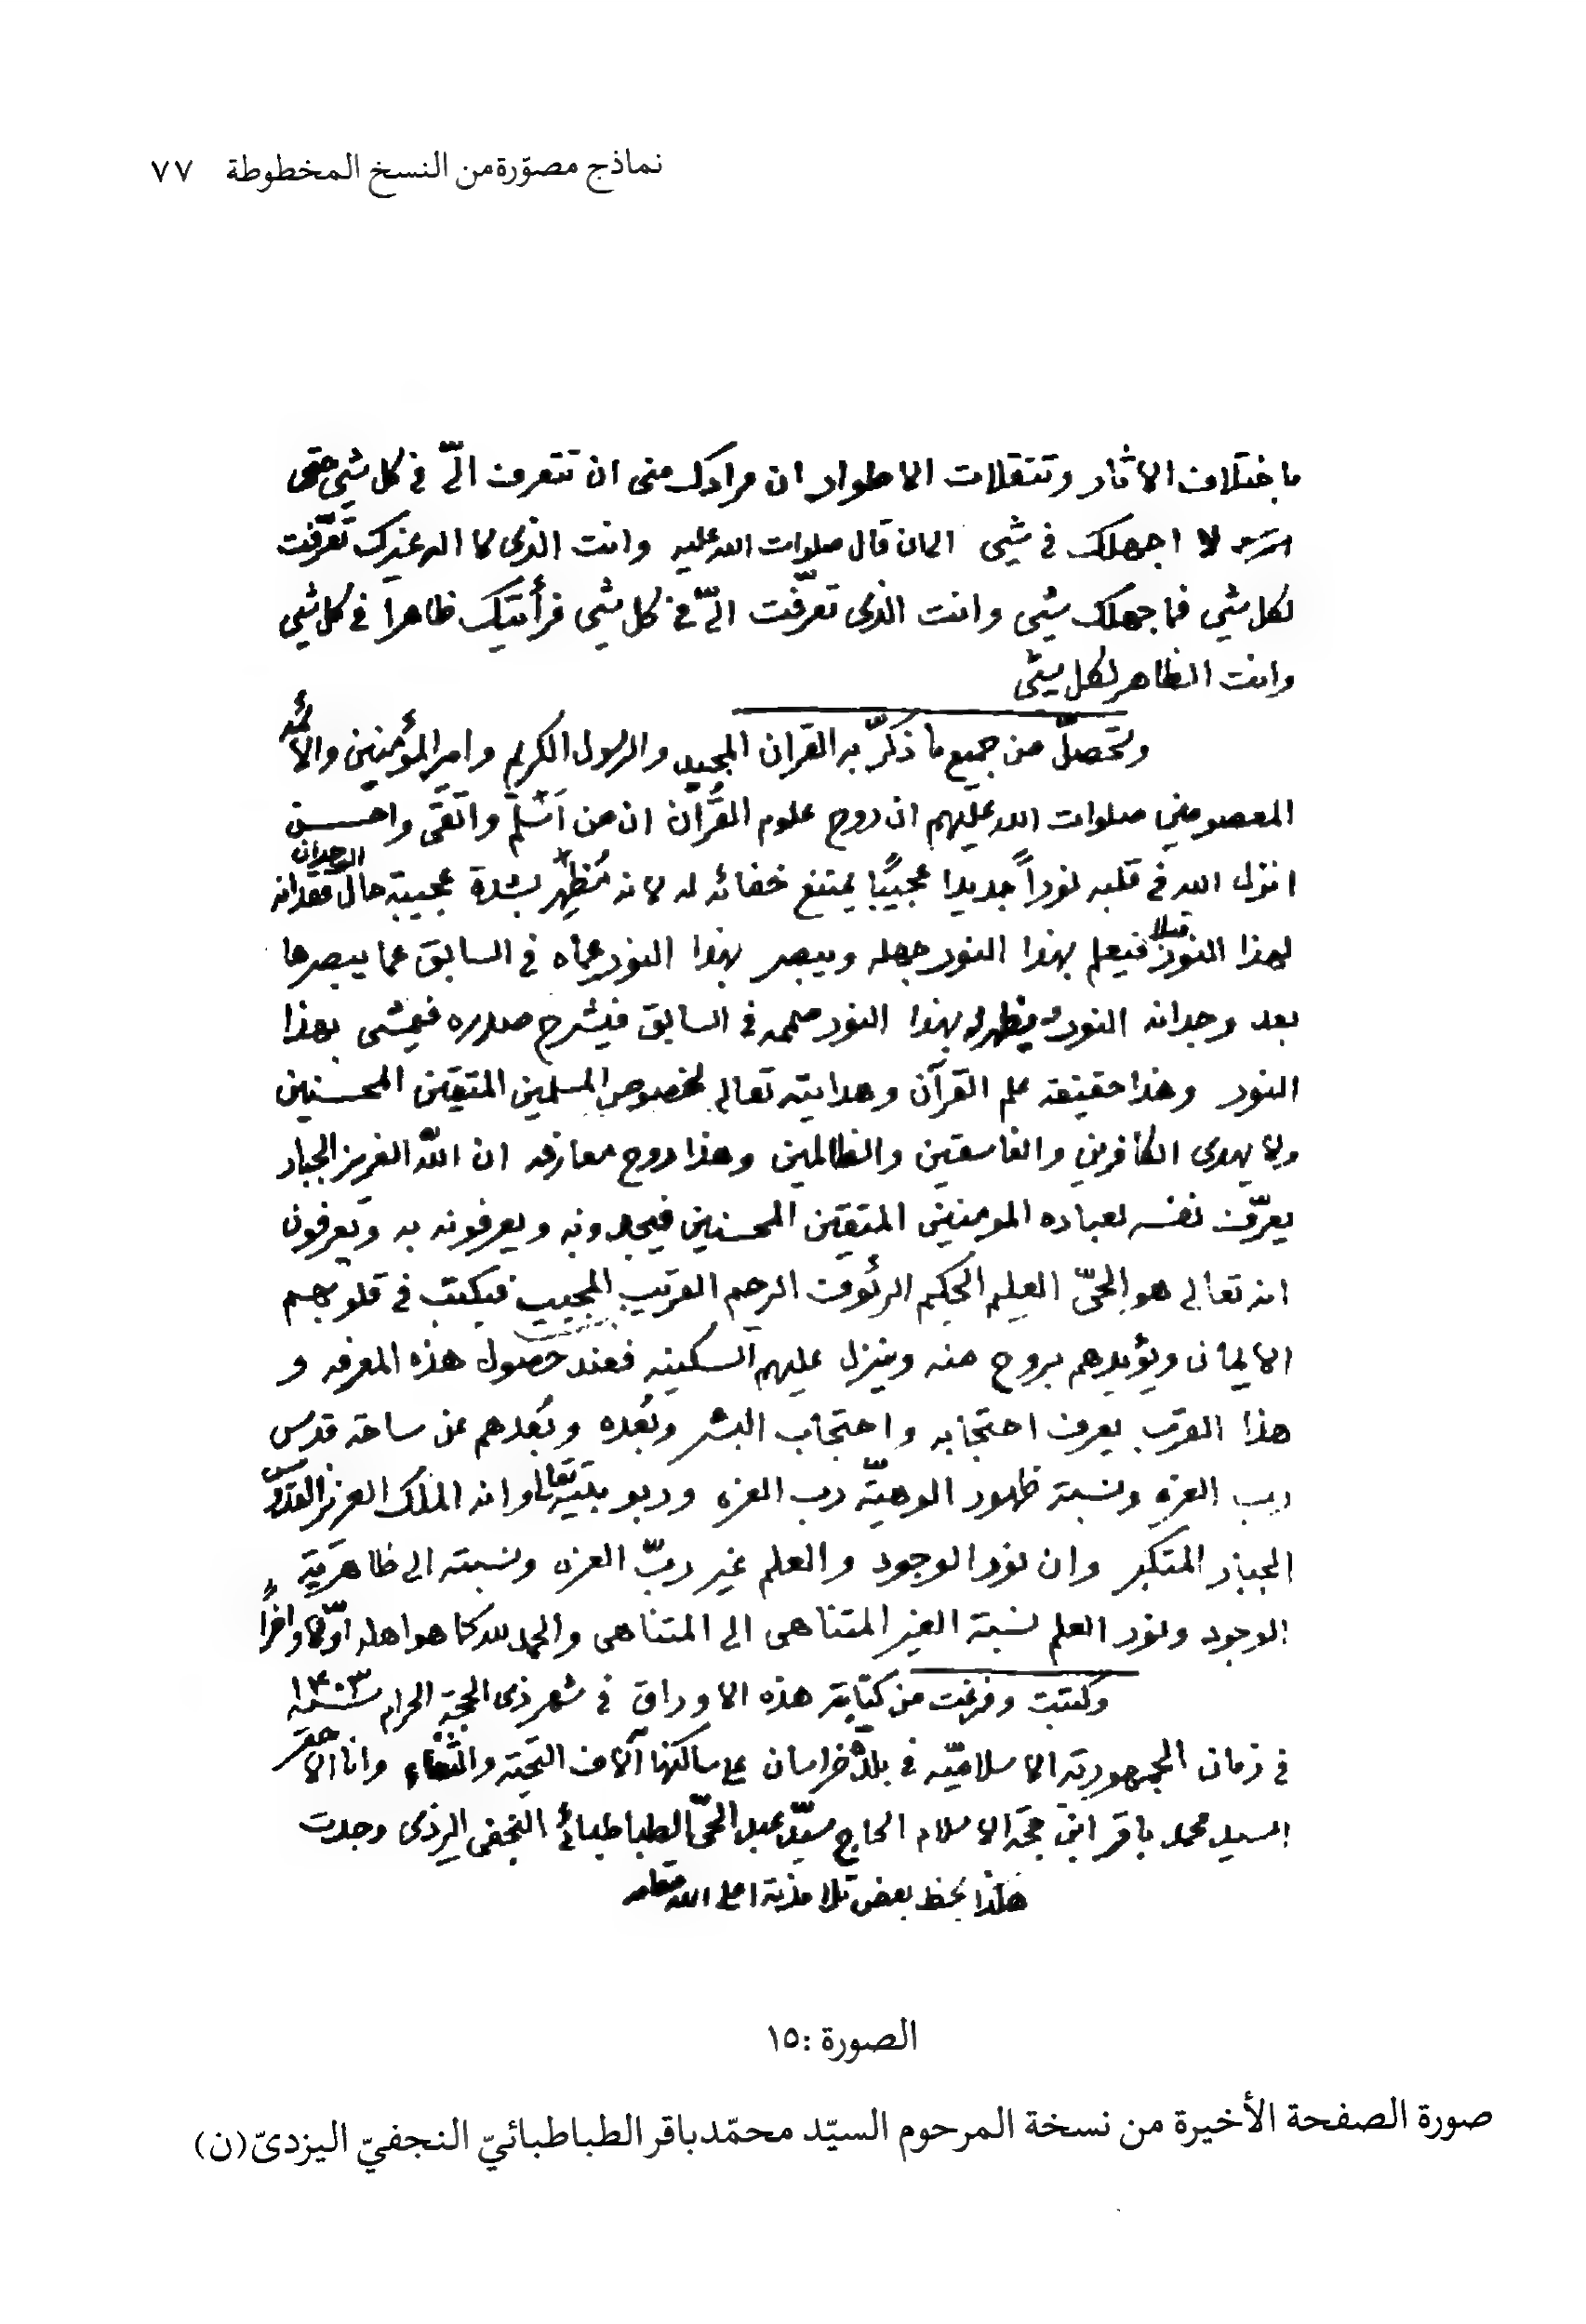 نماذج مصوّرة من النسخ المخطوطة ٧٧
باختلاف الاثار وتنقلات الاطوار ان مرادك منى ان تتعرف الىّ فى كل شيى حتى
لا اجهلك فى شيى الى ان قال صلوات الله عليه وانت الذى لا اله غيرك تَعَرَّفت
لكل شيى فما جهلك شيى وانت الذى تعرّفت الىّ فى كل شيى فرأيتك ظاهراً فى كل شيى
وانت الظاهر لكل شيى
وتحصلّ من جميع ما ذكرّ به القران المجيد والرسول الكريم وامير المؤمنين والأئمة
المعصومين صلوات الله عليهم ان روح علوم القُرآن ان من اَسْلَمَ واتّقى واحسن
انزل الله فى قلبه نوراً جديدا عجيبًا يمتنع خفائه له لانه مُظهِر بشدة عجيبة حال الوجدان فقدانه
لهذا النور قبلا فيعلم بهذا النور جهله ويبصر بهذا النور عماه فى السابق عما يبصرها
بعد وجدانه النور ويظهر له بهذا النور صممه فى السابق فيشرح صدره فيمشى بهذا
النور وهذا حقيقة علم القرآن وهدايته تعالى لخصوص المسلمين المتقين المحسنين
ولا يهدى الكافرين والفاسقين والظالمين وهذا روح معارفه ان اللّه العزيز الجبار
يعرّف نفسه لعباده المومنين المتقين المحسنين فيجدونه ويعرفونه به ويعرفون
انه تعالى هو الحىّ العليم الحكيم الرئوف الرحيم القريب المجيب فيكتب فى قلوبهم
الايمان ويؤيدهم بروح منه وينزل عليهم السكينه فعند حصول هذه المعرفه و
هذا القرب يعرف احتجابه واحتجاب البشر وبُعده وبُعدهم عن ساحة قدس
رب العزه ونسبة ظهور الوهيّة رب العزه وربوبيّته تعالى وانه الملك العزيز القدّوس
الجبار المتكبر وان نور الوجود والعلم غير ربّ العزه ونسبته الى ظاهرَيّة
الوجود ونور العلم نسبة الغير المتناهى الى المتناهى والحمد لله كما هو اهله اوّلاً واخراً
وكتبت وفرغت من كتابة هذه الاوراق فى شهر ذى الحجة الحرام سنة ١۴٠٣
فى زمان الجمهورية الاسلاميّه فى بلدة خراسان على ساكنها آلاف التحيّة والثناء وانا الاحقر
السيد محمد باقر ابن حجة الاسلام الحاج سيّد عبد الحىّ الطباطبائى النجفى اليزدى وجدت
هذا بخط بعض تلامذته اعلى الله مقامه
الصورة :١٥
صورة الصفحة الأخيرة من نسخة المرحوم السيّد محمّدباقر الطباطبائيّ النجفيّ اليزدىّ (ن)